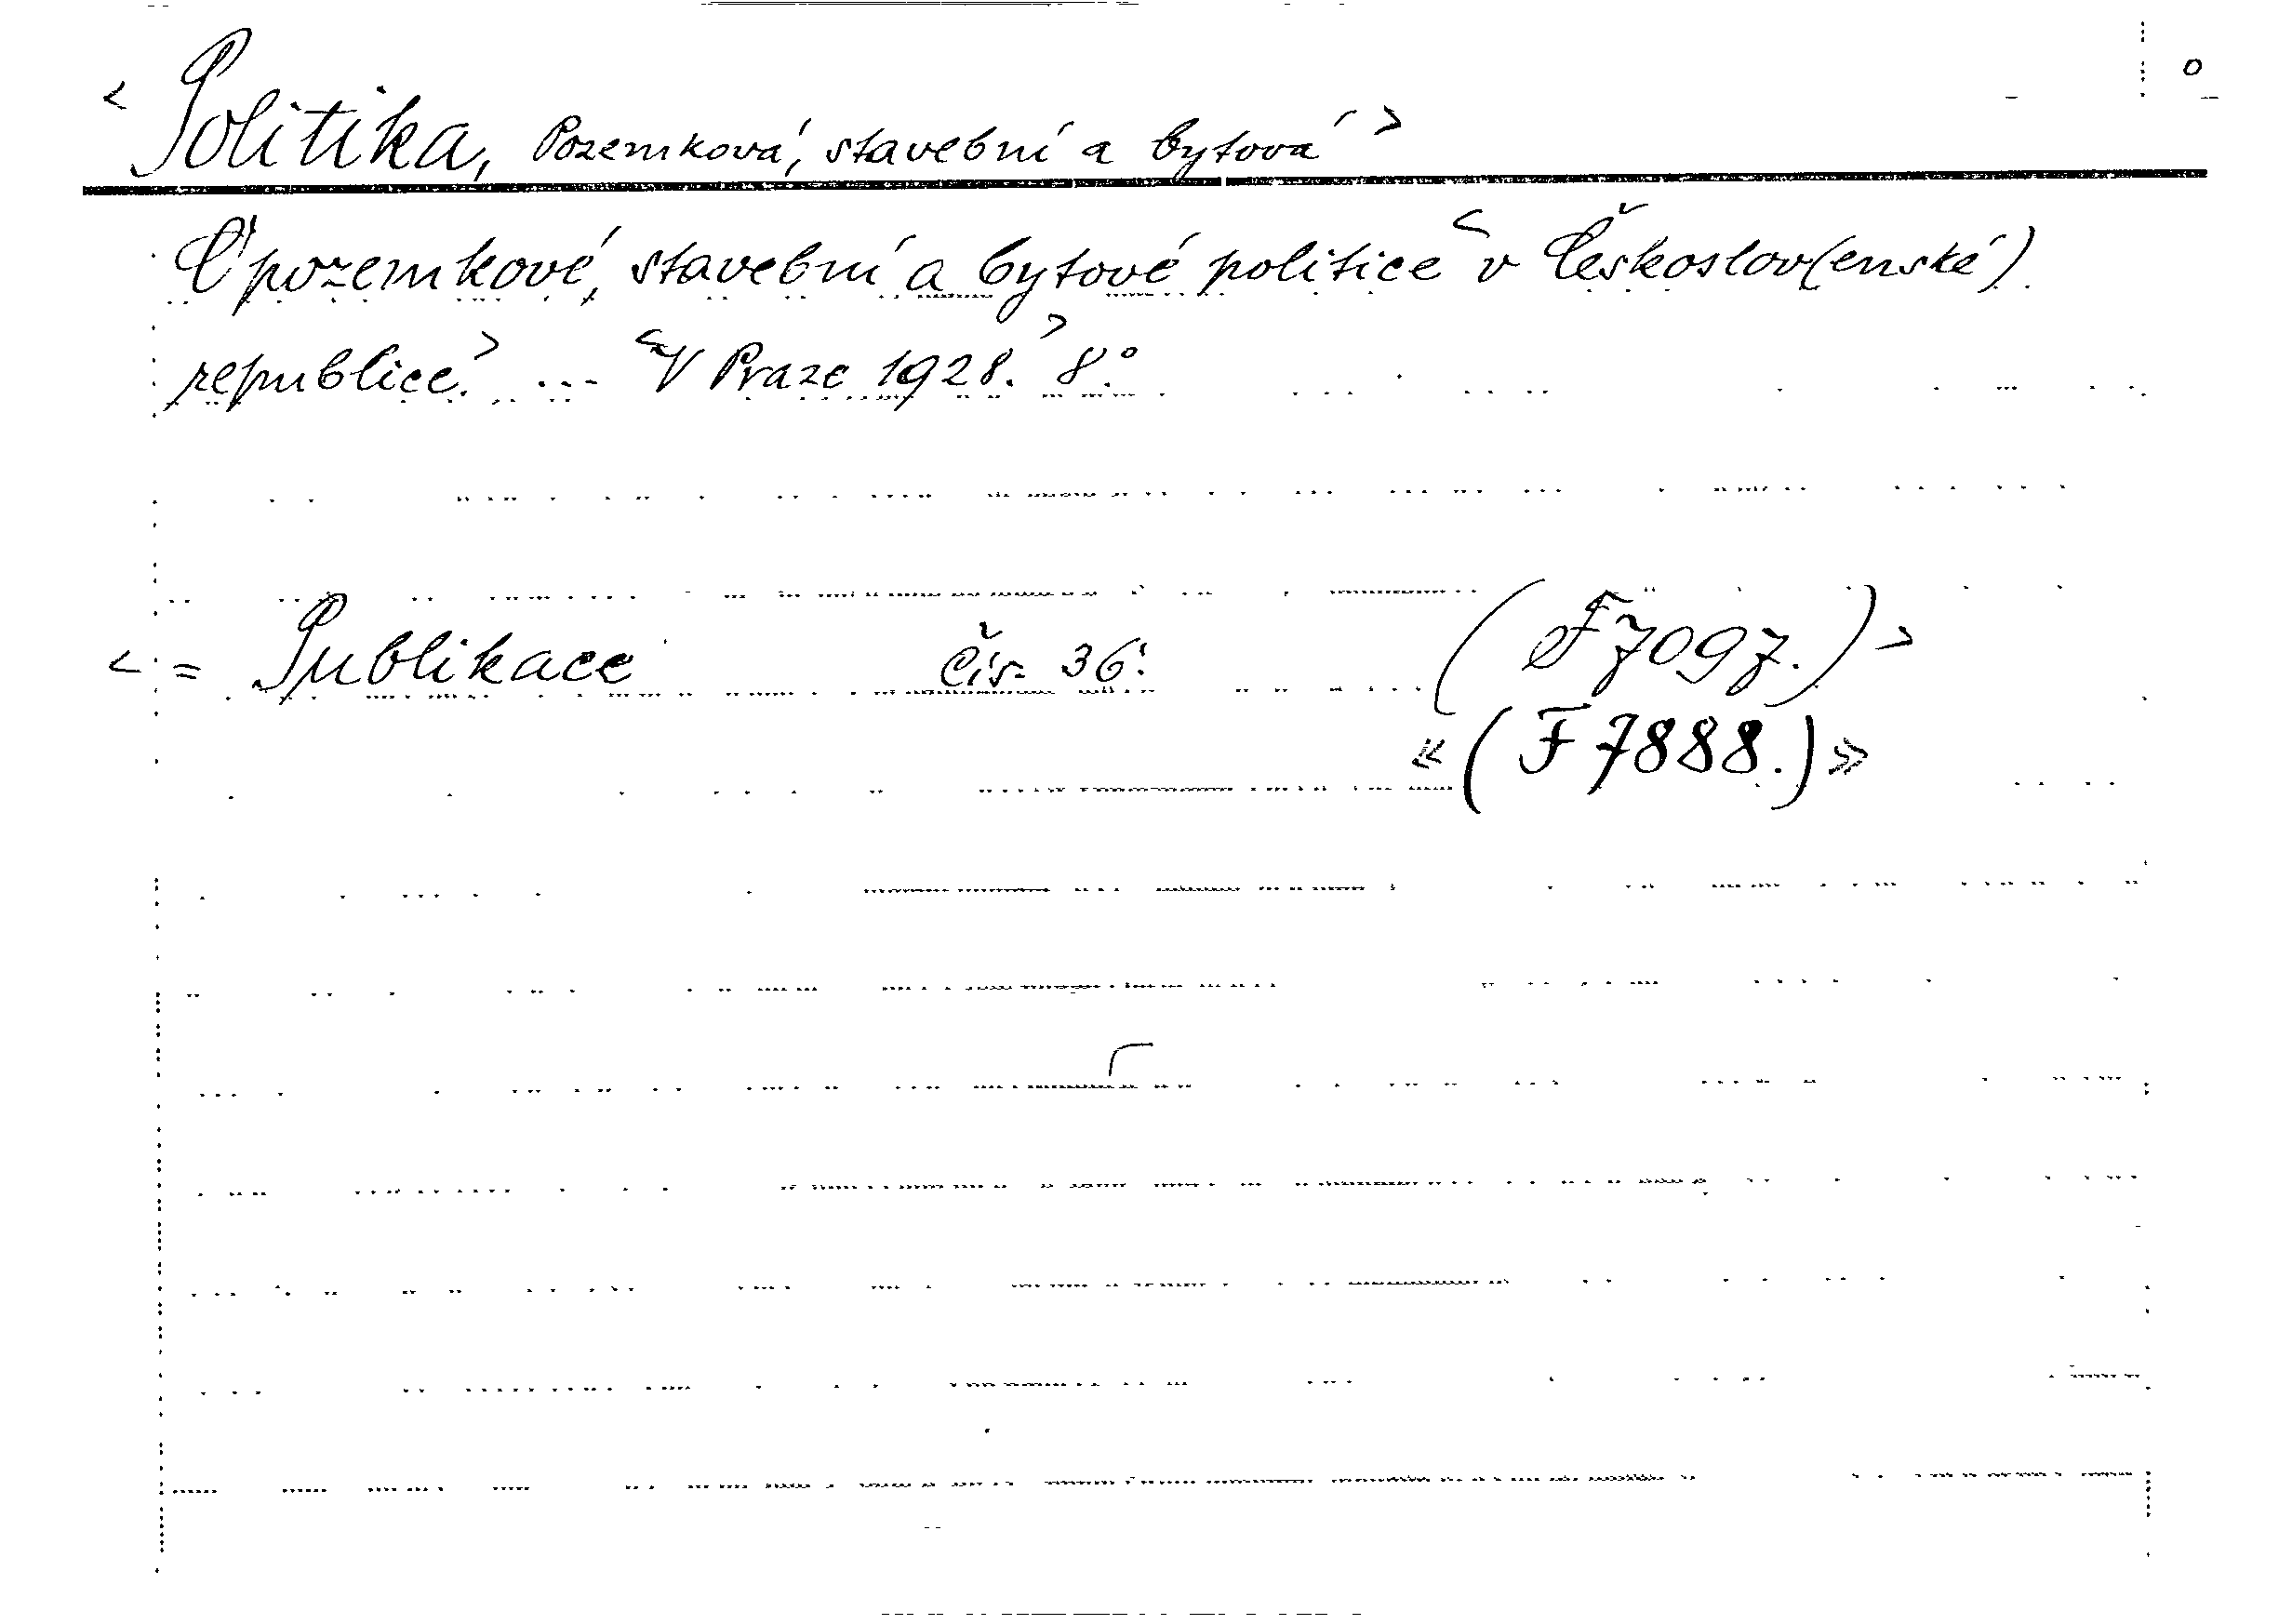 o
< Politika, Pozemková, stavební a bytová >
O pozemkové, stavební a bytové politice < v Českoslov(enské)
republice. > ... < V Praze 1928. > 8.°
< = Publikace čís. 36. (F 7097.) >
« (F 7888.) »